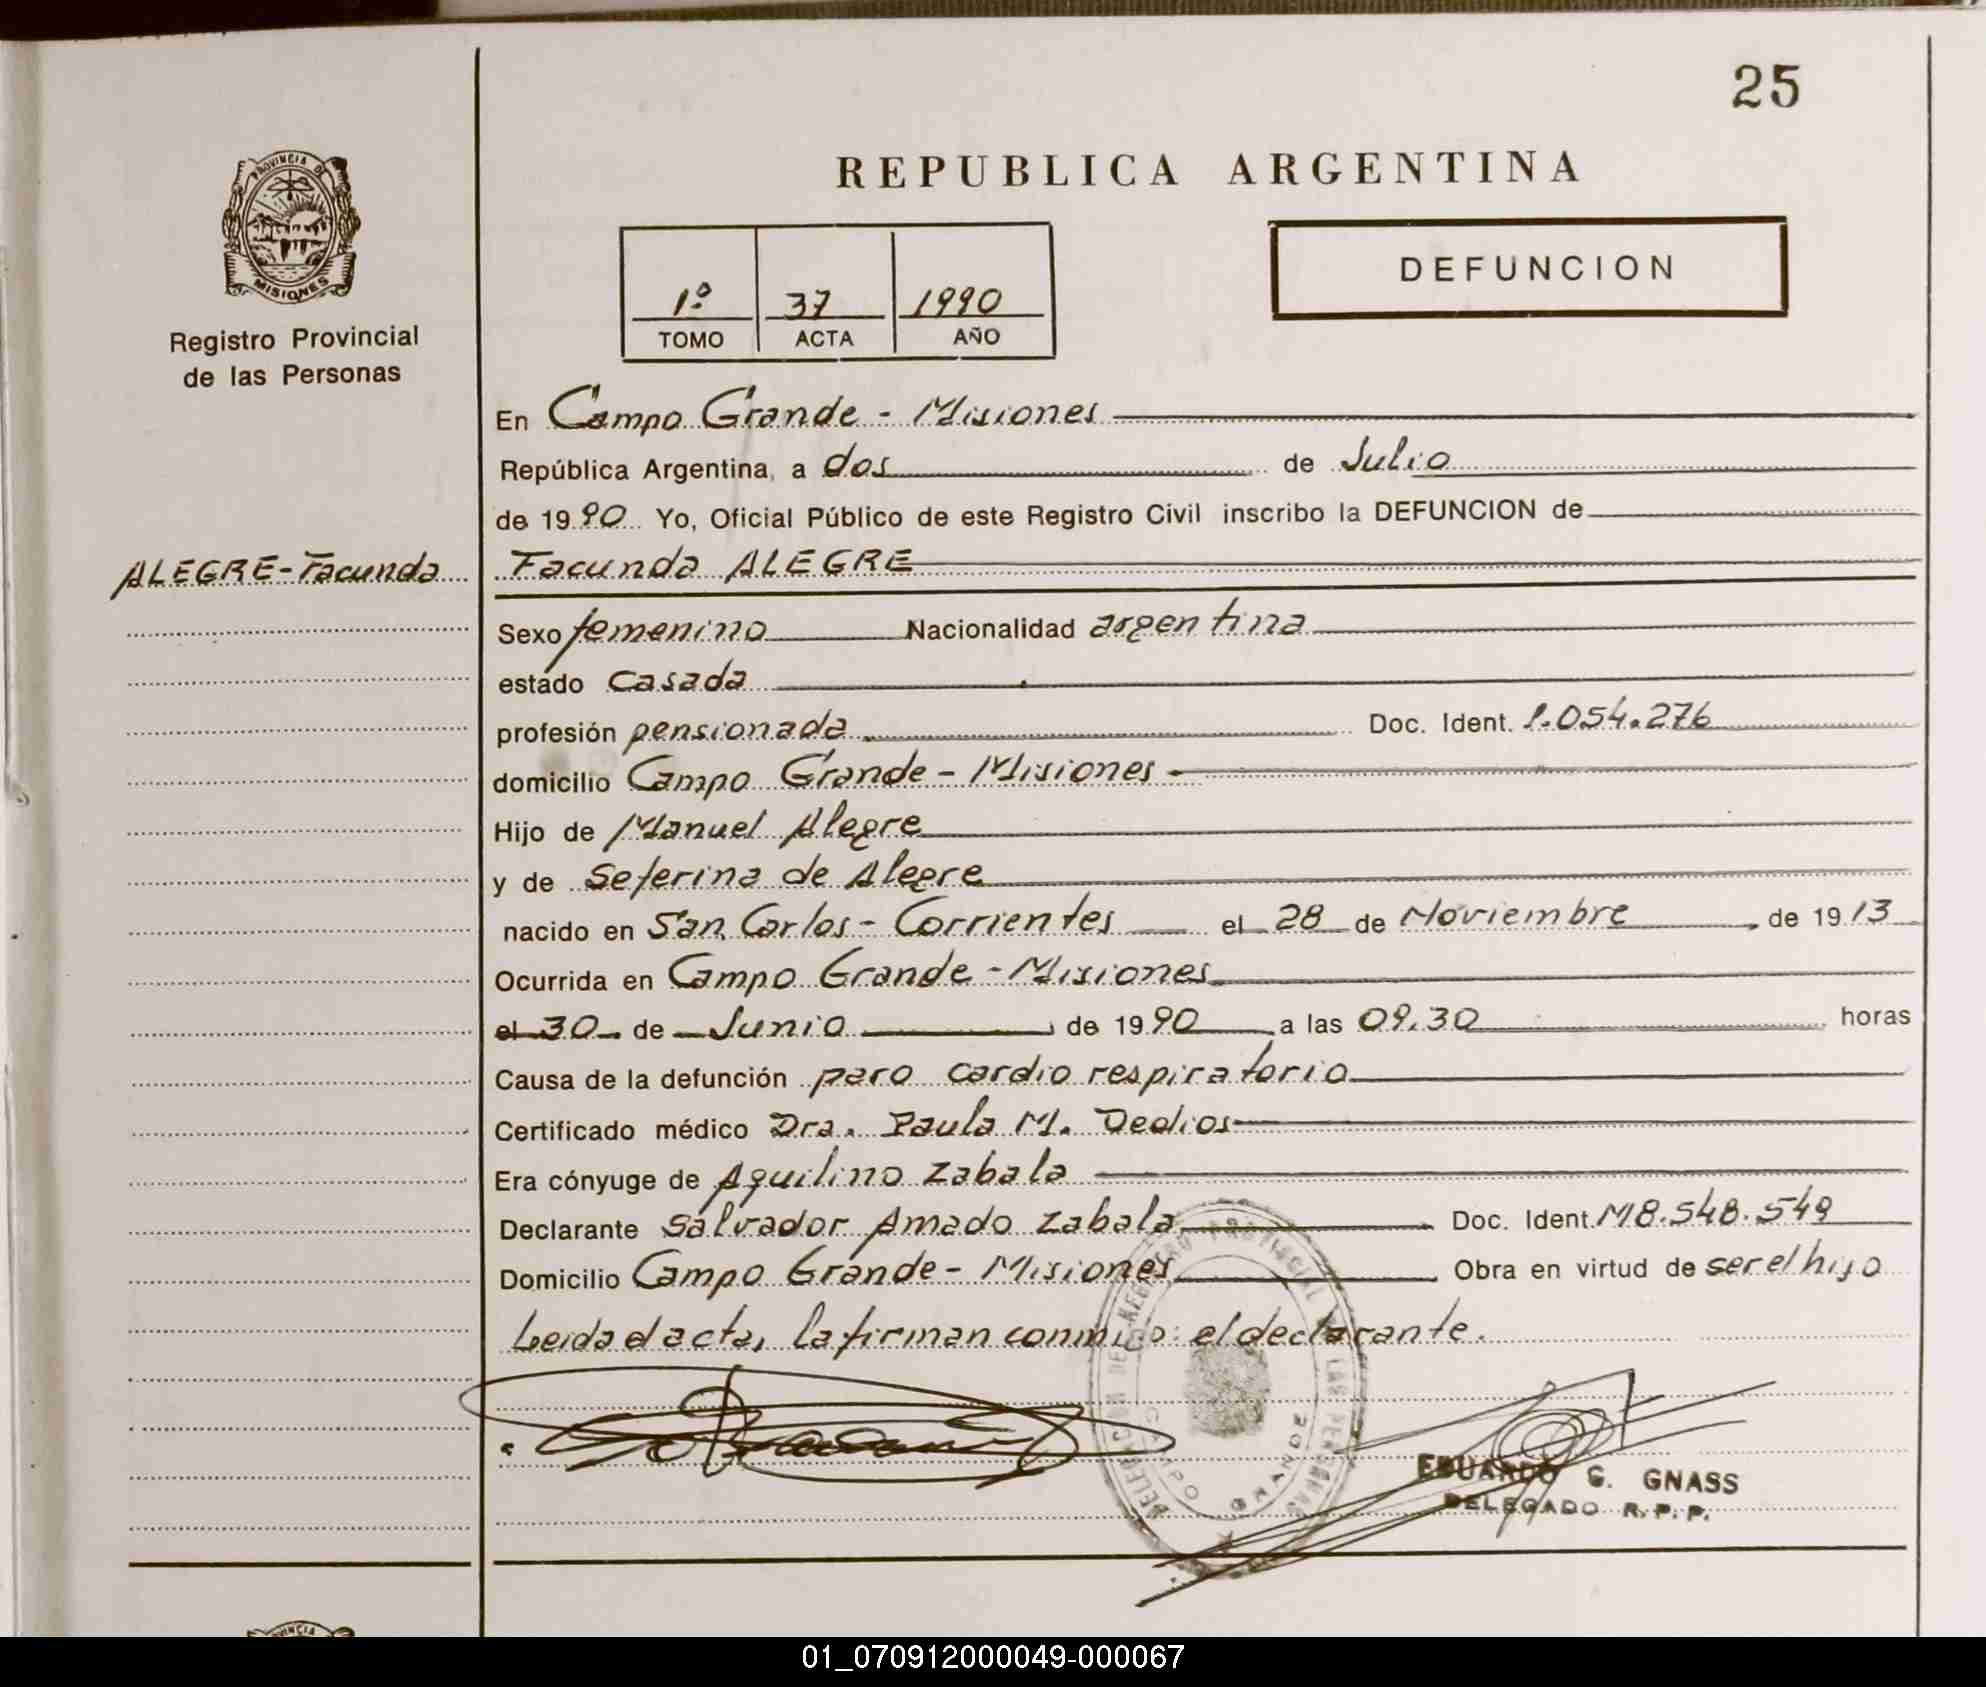 25
PROVINCIA D
MISIONES
Registro Provincial
de las Personas
REPUBLICA ARGENTINA
1º 37 1990
TOMO ACTA AÑO
DEFUNCION
En Campo Grande - Misiones
República Argentina, a dos de Julio
de 1990 Yo, Oficial Público de este Registro Civil inscribo la DEFUNCION de
ALEGRE - Facunda
Facunda ALEGRE
Sexo femenino Nacionalidad argentina
estado casada
profesión pensionada Doc. Ident. 1.054.276
domicilio Campo Grande - Misiones
Hijo de Manuel Alegre
y de Seferina de Alegre
nacido en San Carlos - Corrientes el 28 de Noviembre de 1913
Ocurrida en Campo Grande - Misiones
el 30 de Junio de 1990 a las 09.30 horas
Causa de la defunción paro cardio respiratorio
Certificado médico Dra. Paula M. Dedios
Era cónyuge de Aquilino Zabala
Declarante Salvador Amado Zabala Doc. Ident. M8.548.549
Domicilio Campo Grande - Misiones Obra en virtud de ser el hijo
Leida el acta, la firman conmigo: el declarante.
DELEGACION DEL REGISTRO PROVINCIAL DE LAS PERSONAS
CAMPO GRANDE
EDUARDO G. GNASS
DELEGADO R.P.P.
VINCIA
01_070912000049-000067